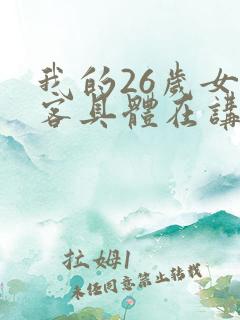 我的26歲女
客具體在講
拉姆1
未经同意禁止转载